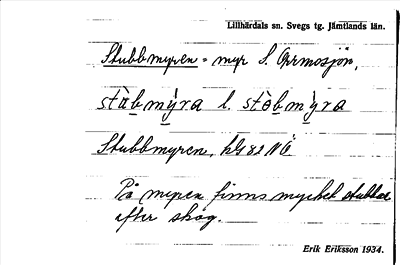 Lillhärdals sn. Svegs tg. Jämtlands län.
Stubbmyren = myr S. Ormosjön,
stäbmỳra l. stòbmỳra
Stubbmyren, kG 82 NÖ
På myren finns mycket stubbar
efter skog.
Erik Eriksson 1934.